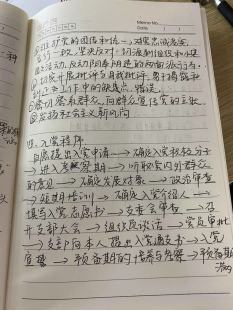 Memo No.
Date / /
维护党的团结和统一,对党忠诚老实
言行一致,坚决反对一切派别组织和小集
团活动,反对阳奉阴违的两面派行为
切实开展批评与自我批评,勇于揭露和纠
正工作中的缺点、错误
密切联系群众,向群众宣传党的主张
发扬社会主义新风尚
四、入党程序
自愿提出入党申请→确定入党积极分子
→进入考察期→听取党内外群众
的意见→确定发展对象→政治审查
→短期培训→确定入党介绍人→
填写入党志愿书→支委会审查→召
开支部大会→组织员谈话→党员审批
→支部向本人提出入党通知书→入党
宣誓→预备期的培养与考察→预备期
满